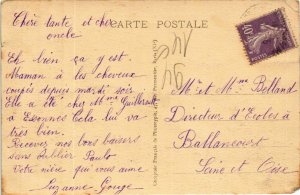 CARTE POSTALE
Chère tante et cher
oncle
Eh bien ça y est.
Maman à les cheveux
coupés depuis mardi soir
Elle a été chez Mme
à Essonnes Cela lui va
très bien.
Recevez nos bons baisers
sans oublier Paulo
Votre nièce qui vous aime
Suzanne Gouge
Mr et Mme Bolland
Directeur d'Ecoles à
Ballancourt
Seine et Oise